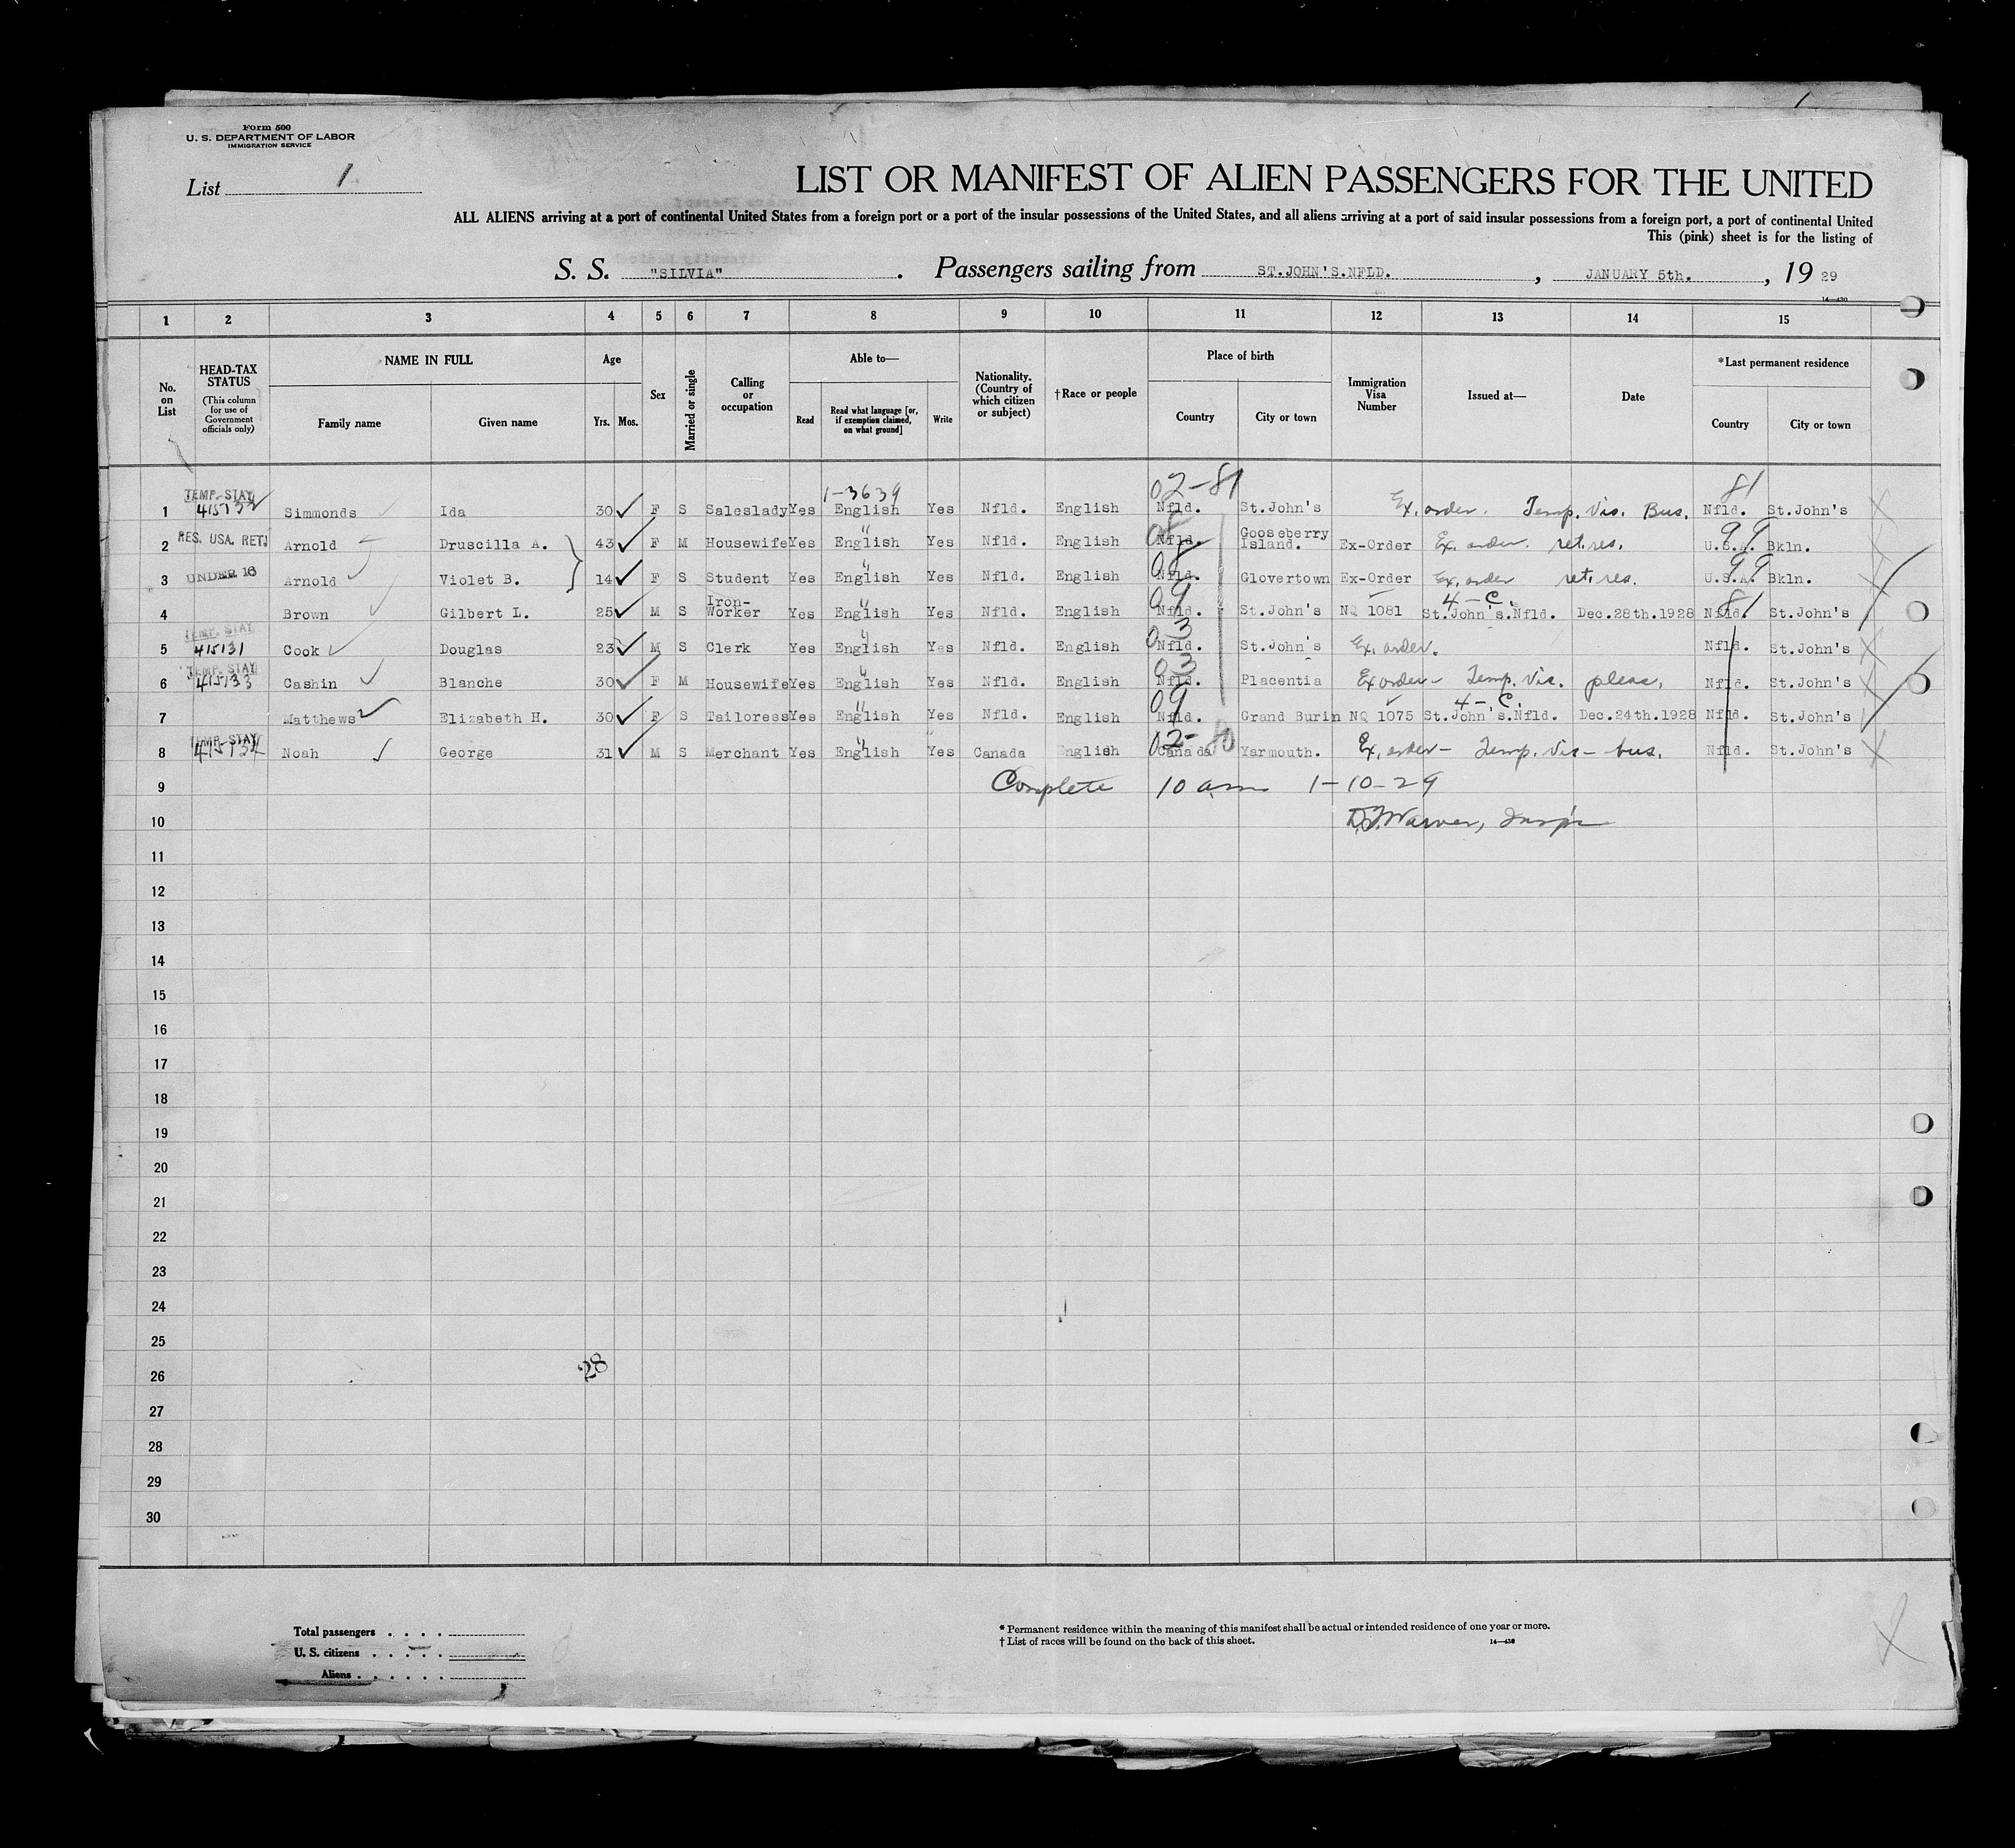 1
Form 500
U. S. DEPARTMENT OF LABOR
IMMIGRATION SERVICE
List 1
LIST OR MANIFEST OF ALIEN PASSENGERS FOR THE UNITED
ALL ALIENS arriving at a port of continental United States from a foreign port or a port of the insular possessions of the United States, and all aliens arriving at a port of said insular possessions from a foreign port, a port of continental United
This (pink) sheet is for the listing of
S. S. "SILVIA". Passengers sailing from ST.JOHN'S.NFLD., JANUARY 5th., 19 29
14—430
1 2 3 4 5 6 7 8 9 10 11 12 13 14 15
No. on List
HEAD-TAX STATUS (This column for use of Government officials only)
NAME IN FULL
Family name Given name
Age
Yrs. Mos.
Sex
Married or single
Calling or occupation
Able to—
Read Read what language [or, if exemption claimed, on what ground] Write
Nationality. (Country of which citizen or subject)
†Race or people
Place of birth
Country City or town
Immigration Visa Number
Issued at—
Date
*Last permanent residence
Country City or town
TEMP. STAY 1-3639 02-81 81
1 Simmonds Ida 30 F S Saleslady Yes English Yes Nfld. English Nfld. St.John's Ex. order. Temp. Vis. Bus. Nfld. St.John's
2 RES. USA. RET. Arnold Druscilla A. 43 F M Housewife Yes English Yes Nfld. English Nfld. Gooseberry Island. Ex-Order Ex. order. ret. res. 99 U.S.A. Bkln.
3 UNDER 16 Arnold Violet B. 14 F S Student Yes English Yes Nfld. English Nfld. Glovertown Ex-Order Ex. order ret. res. 99 U.S.A. Bkln.
4 Brown Gilbert L. 25 M S Iron-Worker Yes English Yes Nfld. English 09 Nfld. St.John's NQ 1081 4-C. St.John's.Nfld. Dec.28th.1928 81 Nfld. St.John's
TEMP. STAY
5 415131 Cook Douglas 23 M S Clerk Yes English Yes Nfld. English 03 Nfld. St.John's Ex. order. Nfld. St.John's
TEMP. STAY
6 415133 Cashin Blanche 30 F M Housewife Yes English Yes Nfld. English 03 Nfld. Placentia Ex order- Temp. Vis. pleas. Nfld. St.John's
7 Matthews Elizabeth H. 30 F S Tailoress Yes English Yes Nfld. English 09 Nfld. Grand Burin NQ 1075 4-C. St.John's.Nfld. Dec.24th.1928 Nfld. St.John's
TEMP. STAY
8 Noah George 31 M S Merchant Yes English Yes Canada English 02-80 Canada Yarmouth. Ex. order- Temp. Vis- bus. Nfld. St.John's
9 Complete 10 am 1-10-29
10
11
12
13
14
15
16
17
18
19
20
21
22
23
24
25
26 28
27
28
29
30
Total passengers
U. S. citizens
Aliens
* Permanent residence within the meaning of this manifest shall be actual or intended residence of one year or more.
† List of races will be found on the back of this sheet.
14—430